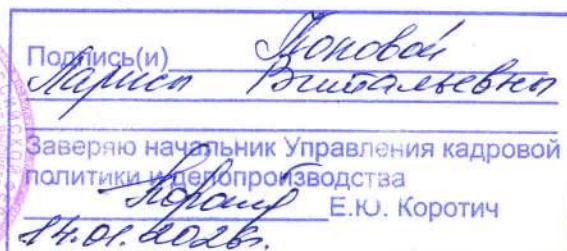 Подпись(и) Поповой
Ларисы Витальевны
Заверяю начальник Управления кадровой
политики и делопроизводства
Е.Ю. Коротич
14.01.2026г.